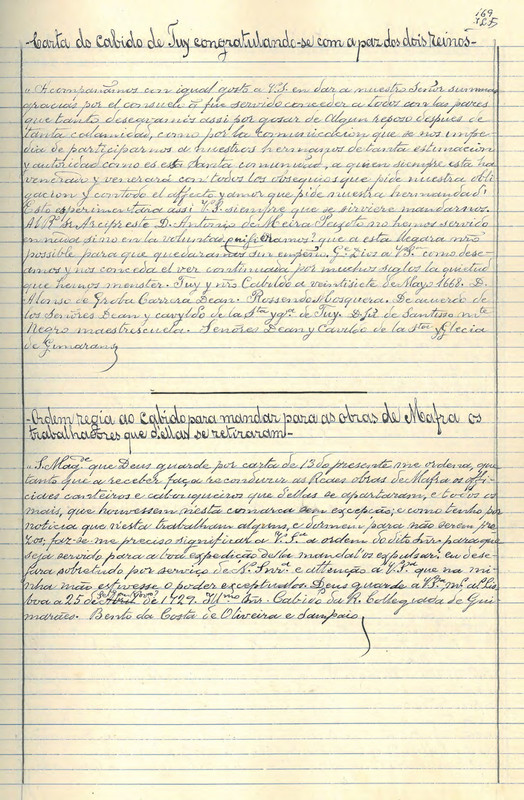 169
Carta do cabido de Tuy congratulando-se com a paz dos dois reinos
"Acompanãmos con igual gosto a V.S. en dar a nuestro Señor summas
gracias por el consuelo q̃ fue servido conceder a todos con las pazes
que tanto deseavamos assi por gosar de algun reposo depues de
tanta calamidad, como por la comunicacion que se nos impe-
dia de participarnos a nuestros hermanos de tanta estimacion
y autoridad como es essa santa comunidad, a quien siempre esta ha
venerado y venerará con todos los obsequios que pide nuestra obli-
gacion y con todo el affecto y amor que pide nuestra hermandad:
Esto experimentara assi V.S. siempre que se serviere mandarnos.
Al R. Sr. Arcipreste D. Antonio de Meira Pazoto no hemos servido
en nada si no en la voluntad que a esta llegara nño
possible para que quedaramos sin Dios a V.S. como dese-
amos y nos conceda el ver continuada por muchos siglos la quietud
que hemos menster. Tuy y nr̃o Cabildo a veintisiete de Mayo 1668. D.
Alonso de Groba Carrera Dean. Rossendo Mosquera. De acuerdo de
los Señores Dean y cavyldo de la Sta yga. de Tuy. D. de Santisso
Negro maestrescuela. Señores Dean y Cavildo de la Sta. Yglecia
de Gimarans
Ordem regia ao cabido para mandar para as obras de Mafra os
trabalhadores que d'ellas se retiraram
"S. Magde. que Deus guarde por carta de 13 do presente me ordena, que
tanto que a receber, faça reconduzir as Reaes obras de Mafra os offi-
ciaes canteiros e cabouqueiros que d'ellas se apartaram, e todos os
mais, que houvessem nesta comarca sem excepção; e como tenho por
noticia que nesta trabalham alguns, e dormem para não serem pre-
zos, faz-se me preciso significar a V.Sa. a ordem do dito Snr. para que
seja servido para a boa expedição desta mandal'os expulsar; en dese-
jara sobretudo por serviço de N. Snra. e attenção a V.Sa. que na mi-
nha mão estivesse o poder exceptual-os. Deus guarde a V.Sa. ms. as. Lis-
boa a 25 de Abril de 1729. Illmo. Snr. Cabido da R. Collegiada de Gui-
marães. Bento da Costa de Oliveira e Sampaio